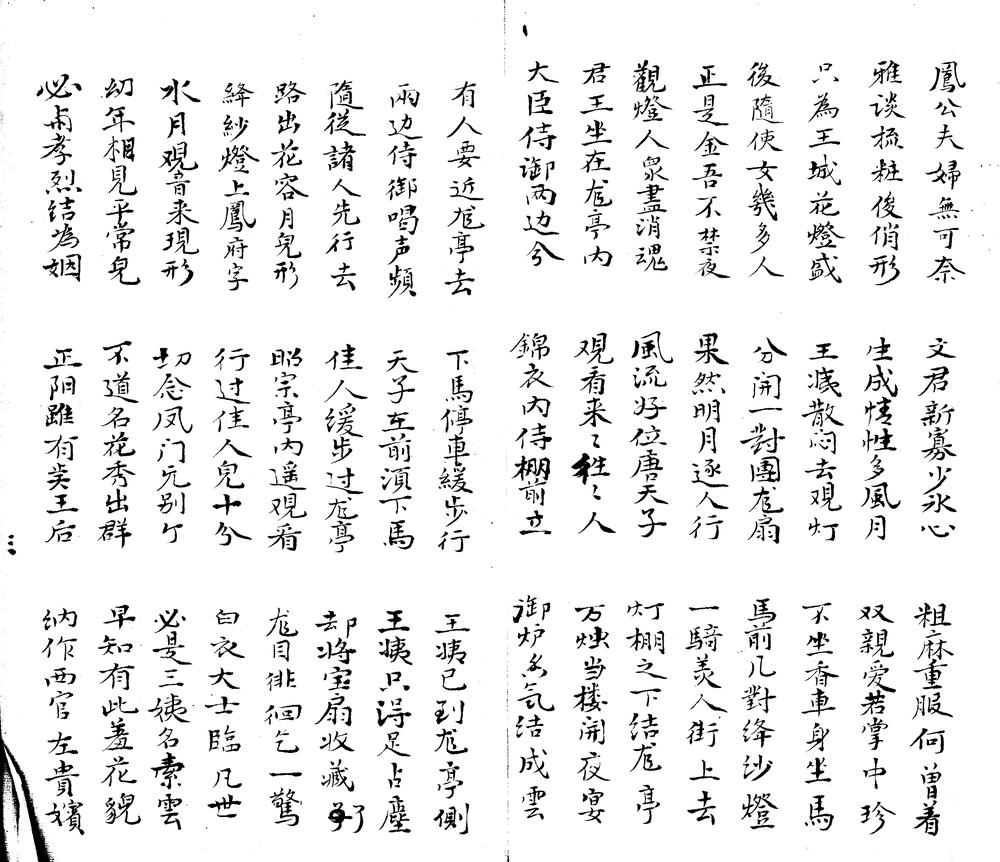 鳳公夫婦無可奈 文君新寡少永心 粗麻重服何曾着
雅谈梳粧俊俏形 生成情性多風月 双親愛若掌中珍
只為王城花燈盛 王姨散闷去观灯 不坐香車身坐馬
後隨使女幾多人 分開一對團龙扇 馬前几對绛纱燈
正是金吾不禁夜 果然明月逐人行 一騎美人街上去
觀燈人眾盡消魂 風流好位唐天子 灯棚之下结龙亭
君王坐在龙亭内 观看来〻往〻人 万烛当楼開夜宴
大臣侍御两边分 錦衣内侍棚前立 御炉香气结成雲
有人要近龙亭去 下馬停車緩步行 王姨已到龙亭側
兩边侍御喝声頻 天子在前須下馬 王姨只得足占塵
隨從諸人先行去 佳人缓步过龙亭 却将宝扇收藏了
路出花容月皃形 昭宗亭内遥观看 龙目徘徊乞一驚
絳紗燈上鳳府字 行过佳人皃十分 白衣大士臨凡世
水月观音来現形 切念凤门无别个 必是三姨名素雲
幼年相見平常皃 不道名花秀出群 早知有此羞花貌
必孝烈结為姻 正阳雖有吴王后 纳作西宫左貴嬪